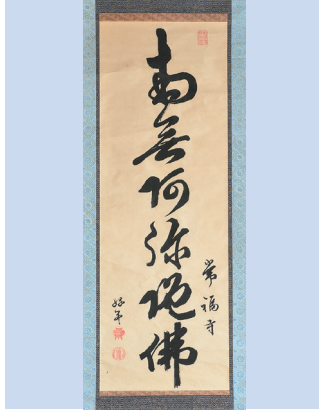 南無阿弥陀佛
常福寺